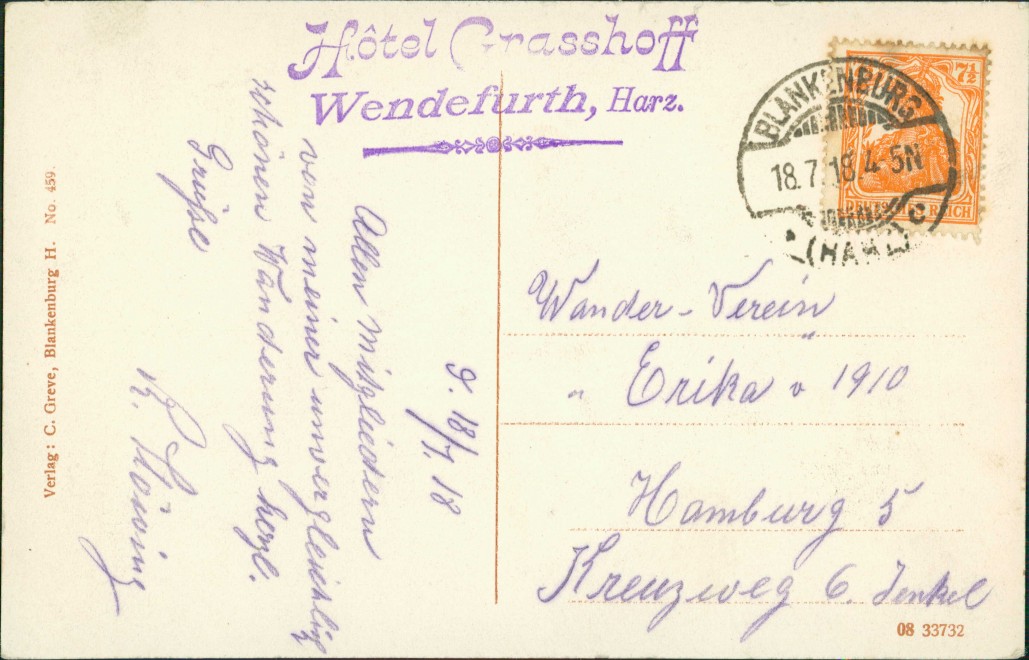 Hôtel Grasshoff
Wendefurth, Harz.
BLANKENBURG
18.7.18.4-5N
C
(HARZ)
7½
DEUTSCHES REICH
d. 18/7. 18
Allen Mitgliedern
von meiner unvergleichlig
schönen Wanderung herzl.
Grüße
Wander-Verein
" Erika " 1910
Hamburg 5
Kreuzweg 6. Henkel
Verlag: C. Greve, Blankenburg H. No. 459.
08 33732